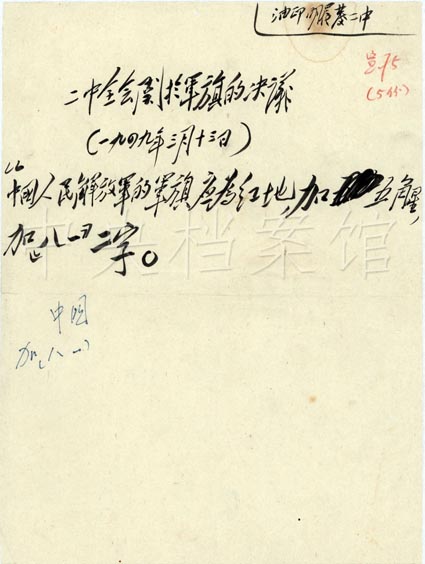 油印
二中
(5件)
二中全会関於軍旗的决議
(一九四九年三月十三日)
中國人民解放軍的軍旗應为红地,加五角星,
加“八一”二字。
中央档案馆
中国
加(八一)